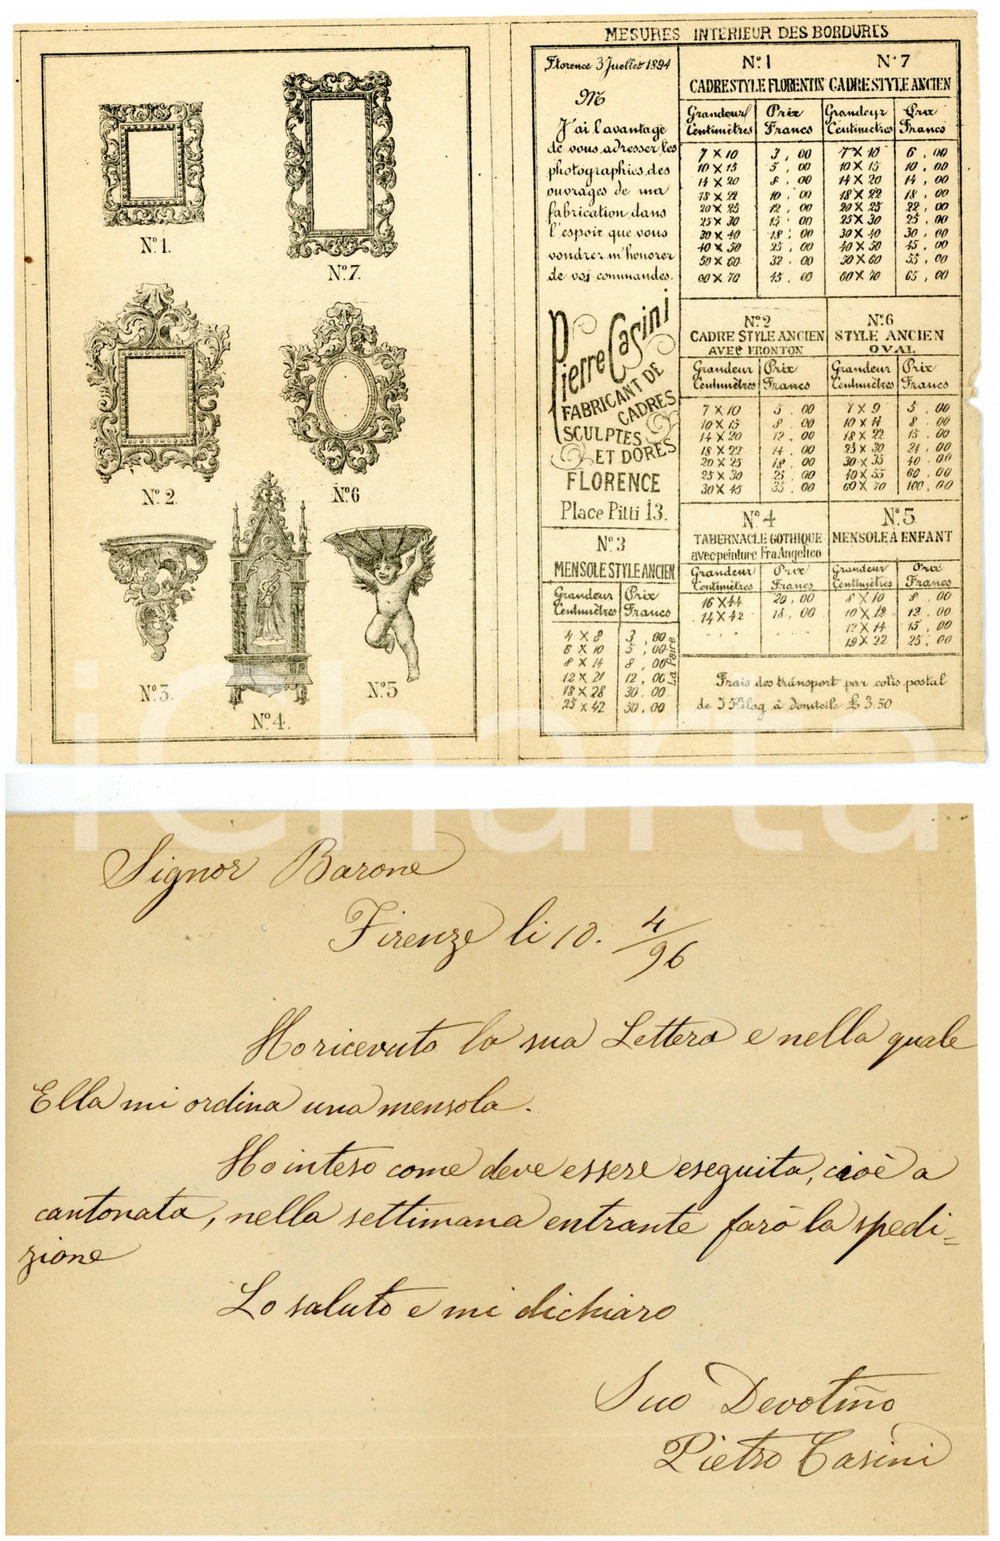 N.º 1.
N.º 7.
N.º 2.
N.º 6
N.º 3.
N.º 4.
N.º 5
MESURES INTERIEUR DES BORDURES
Florence 3 Juellet 1894
M
J'ai l'avantage
de vous adresser les
photographies des
ouvrages de ma
fabrication dans
l'espoir que vous
voudrez m'honorer
de vos commandes.
Pierre Casini
FABRICANT DE
CADRES
SCULPTES
ET DORÉS
FLORENCE
Place Pitti 13.
N.º 3
MENSOLE STYLE ANCIEN
Grandeur Prix
Centimètres Francs
4 X 8 3,00
6 X 10 5,00
8 X 14 8,00
12 X 21 12,00
18 X 28 30.00
25 X 42 50,00
La Paire
N.º 1
CADRE STYLE FLORENTIN
Grandeur Prix
Centimètres Francs
7 X 10 3,00
10 X 15 5,00
14 X 20 8,00
18 X 22 10,00
20 X 25 12,00
25 X 30 15,00
30 X 40 18,00
40 X 50 25,00
50 X 60 32.00
60 X 70 45.00
N.º 7
CADRE STYLE ANCIEN
Grandeur Prix
Centimetres Francs
7 X 10 6,00
10 X 15 10,00
14 X 20 14,00
18 X 22 18,00
20 X 25 22,00
25 X 30 25,00
30 X 40 30,00
40 X 50 45,00
50 X 60 55,00
60 X 70 65,00
N.º 2
CADRE STYLE ANCIEN
AVEC FRONTON
Grandeur Prix
Centimètres Francs
7 X 10 5.00
10 X 15 8.00
14 X 20 12.00
18 X 22 14.00
20 X 25 18.00
25 X 30 25.00
30 X 45 35.00
N.º 6
STYLE ANCIEN
OVAL
Grandeur Prix
Centimètres Francs
7 X 9 5.00
10 X 14 8.00
18 X 22 15.00
25 X 30 21.00
30 X 35 40.00
40 X 55 60.00
60 X 70 100,00
N.º 4
TABERNACLE GOTHIQUE
avec peinture Fra Angelico
Grandeur Prix
Centimètres Francs
16 X 44 20,00
14 X 42 18,00
N.º 5
MENSOLE A ENFANT
Grandeur Prix
Centimètres Francs
8 X 10 8.00
10 X 12 12.00
12 X 14 15,00
19 X 22 25.00
Frais des transport par colis postal
de 3 Kilog à domicile £ 3.50
iCharta
Signor Barone
Firenze li 10. 4/96
Ho ricevuto la sua Lettera e nella quale
Ella mi ordina una mensola.
Ho inteso come deve essere eseguita, cioè a
cantonata, nella settimana entrante farò la spedi=
zione
Lo saluto e mi dichiaro
Suo Devotiño
Pietro Casini